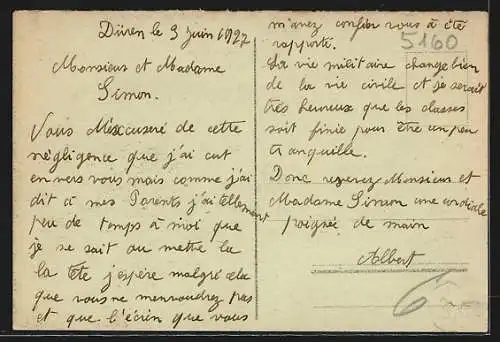 Düren le 3 juin 1927
Monsieur et Madame
Simon.
Vous M'éxcuseré de cette
négligence que j'ai eut
envers vous mais comme j'ai
dit a mes Parents j'ai tellement
peu de temps à moi que
je ne sait au mettre la
la tête j'espère malgré cela
que vous ne menvoudrez pas
et que l'écrin que vous
m'avez confier vous à été
rapporté.
La vie militaire change bien
de la vie civile et je serait
très heureux que les classes
soit finie pour être un peu
tranquille.
Donc recevez Monsieur et
Madame Simon une cordiale
poignée de main
Albert
5160
6